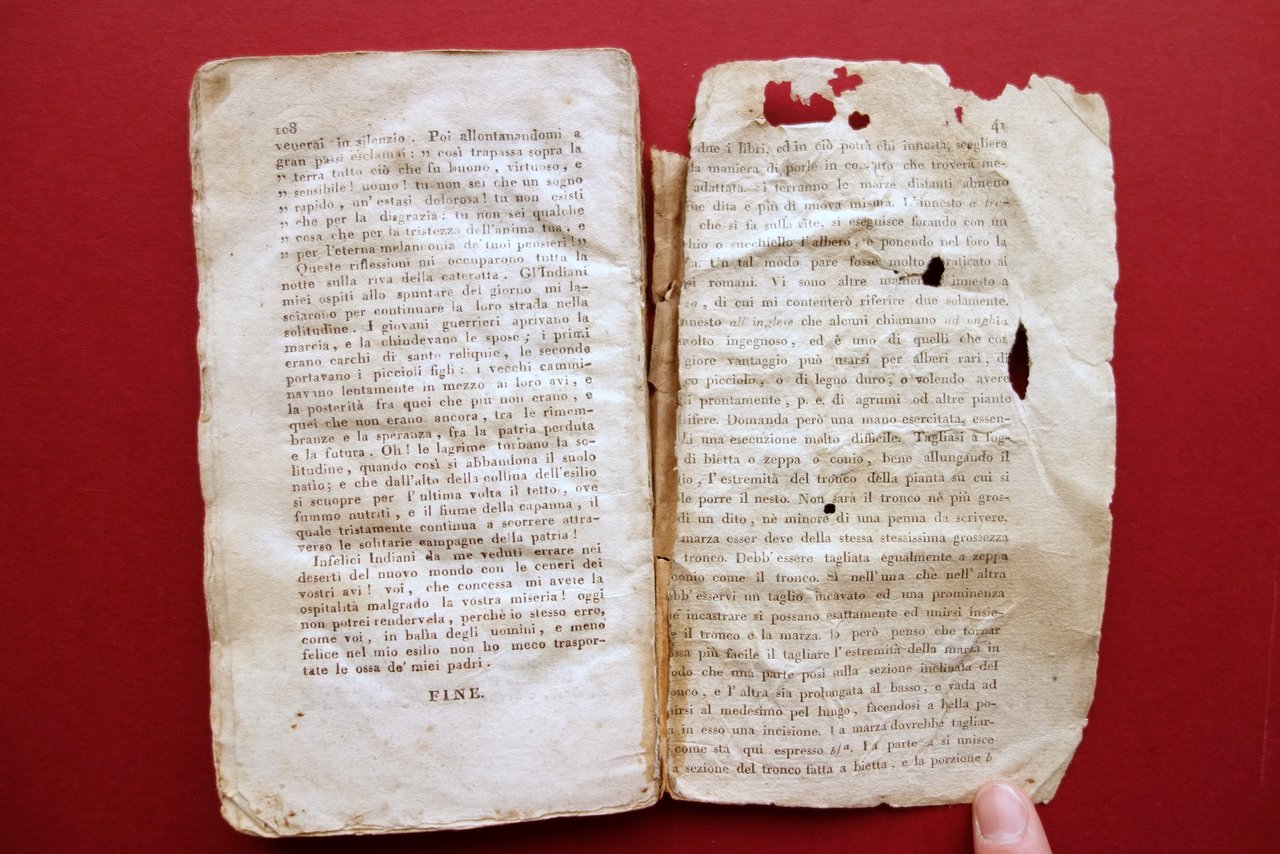 108
venerai in silenzio. Poi allontanandomi a
gran passi esclamai: „ così trapassa sopra la
„ terra tutto ciò che fu buono, virtuoso, e
„ sensibile! uomo! tu non sei che un sogno
„ rapido, un'estasi dolorosa! tu non esisti
„ che per la disgrazia: tu non sei qualche
„ cosa che per la tristezza dell'anima tua, e
„ per l'eterna melanconia de' tuoi pensieri!„
Queste riflessioni mi occuparono tutta la
notte sulla riva della cateratta. Gl'Indiani
miei ospiti allo spuntare del giorno mi la-
sciarono per continuare la loro strada nella
solitudine. I giovani guerrieri aprivano la
marcia, e la chiudevano le spose; i primi
erano carchi di sante reliquie, le seconde
portavano i piccioli figli: i vecchi cammi-
navano lentamente in mezzo ai loro avi, e
la posterità fra quei che più non erano, e
quei che non erano ancora, tra le rimem-
branze e la speranza, fra la patria perduta
e la futura. Oh! le lagrime turbano la so-
litudine, quando così si abbandona il suolo
natìo; e che dall'alto della collina dell'esilio
si scuopre per l'ultima volta il tetto, ove
fummo nutriti, e il fiume della capanna, il
quale tristamente continua a scorrere attra-
verso le solitarie campagne della patria!
Infelici Indiani da me veduti errare nei
deserti del nuovo mondo con le ceneri dei
vostri avi! voi, che concessa mi avete la
ospitalità malgrado la vostra miseria! oggi
non potrei rendervela, perchè io stesso erro,
come voi, in balìa degli uomini, e meno
felice nel mio esilio non ho meco traspor-
tate le ossa de' miei padri.
FINE.
41
due i libri, ed in ciò potrà chi innesta, scegliere
la maniera di porle in contatto che troverà me-
adattata. Si terranno le marze distanti almeno
due dita e più di nuova misura. L'innesto a tra-
che si fa sulla vite, si eseguisce forando con un
hio o succhiello l'albero, e ponendo nel foro la
a. Un tal modo pare fosse molto praticato ai
si romani. Vi sono altre maniere innesto a
za, di cui mi contenterò riferire due solamente.
nnesto all'inglese che alcuni chiamano ad unghia
nolto ingegnoso, ed è uno di quelli che con
giore vantaggio può usarsi per alberi rari, di
co picciolo, o di legno duro, o volendo avere
si prontamente, p. e. di agrumi od altre piante
ifere. Domanda però una mano esercitata, essen-
li una esecuzione molto difficile. Tagliasi a fog-
di bietta o zeppa o conio, bene allungando il
lio, l'estremità del tronco della pianta su cui si
le porre il nesto. Non sarà il tronco nè più gros-
di un dito, nè minore di una penna da scrivere.
marza esser deve della stessa stessissima grossezza
tronco. Debb'essere tagliata egualmente a zeppa
conio come il tronco. Sì nell'una che nell'altra
bb'esservi un taglio incavato ed una prominenza
nè incastrare si possano esattamente ed unirsi insie-
e il tronco e la marza. Io però penso che tornar
ossa più facile il tagliare l'estremità della marza in
odo che una parte posi sulla sezione inclinata del
onco, e l'altra sia prolungata al basso, e vada ad
nirsi al medesimo pel lungo, facendosi a bella po-
a in esso una incisione. La marza dovrebbe tagliar-
come sta qui espresso b/a. La parte a si unisce
a sezione del tronco fatta a bietta, e la porzione b